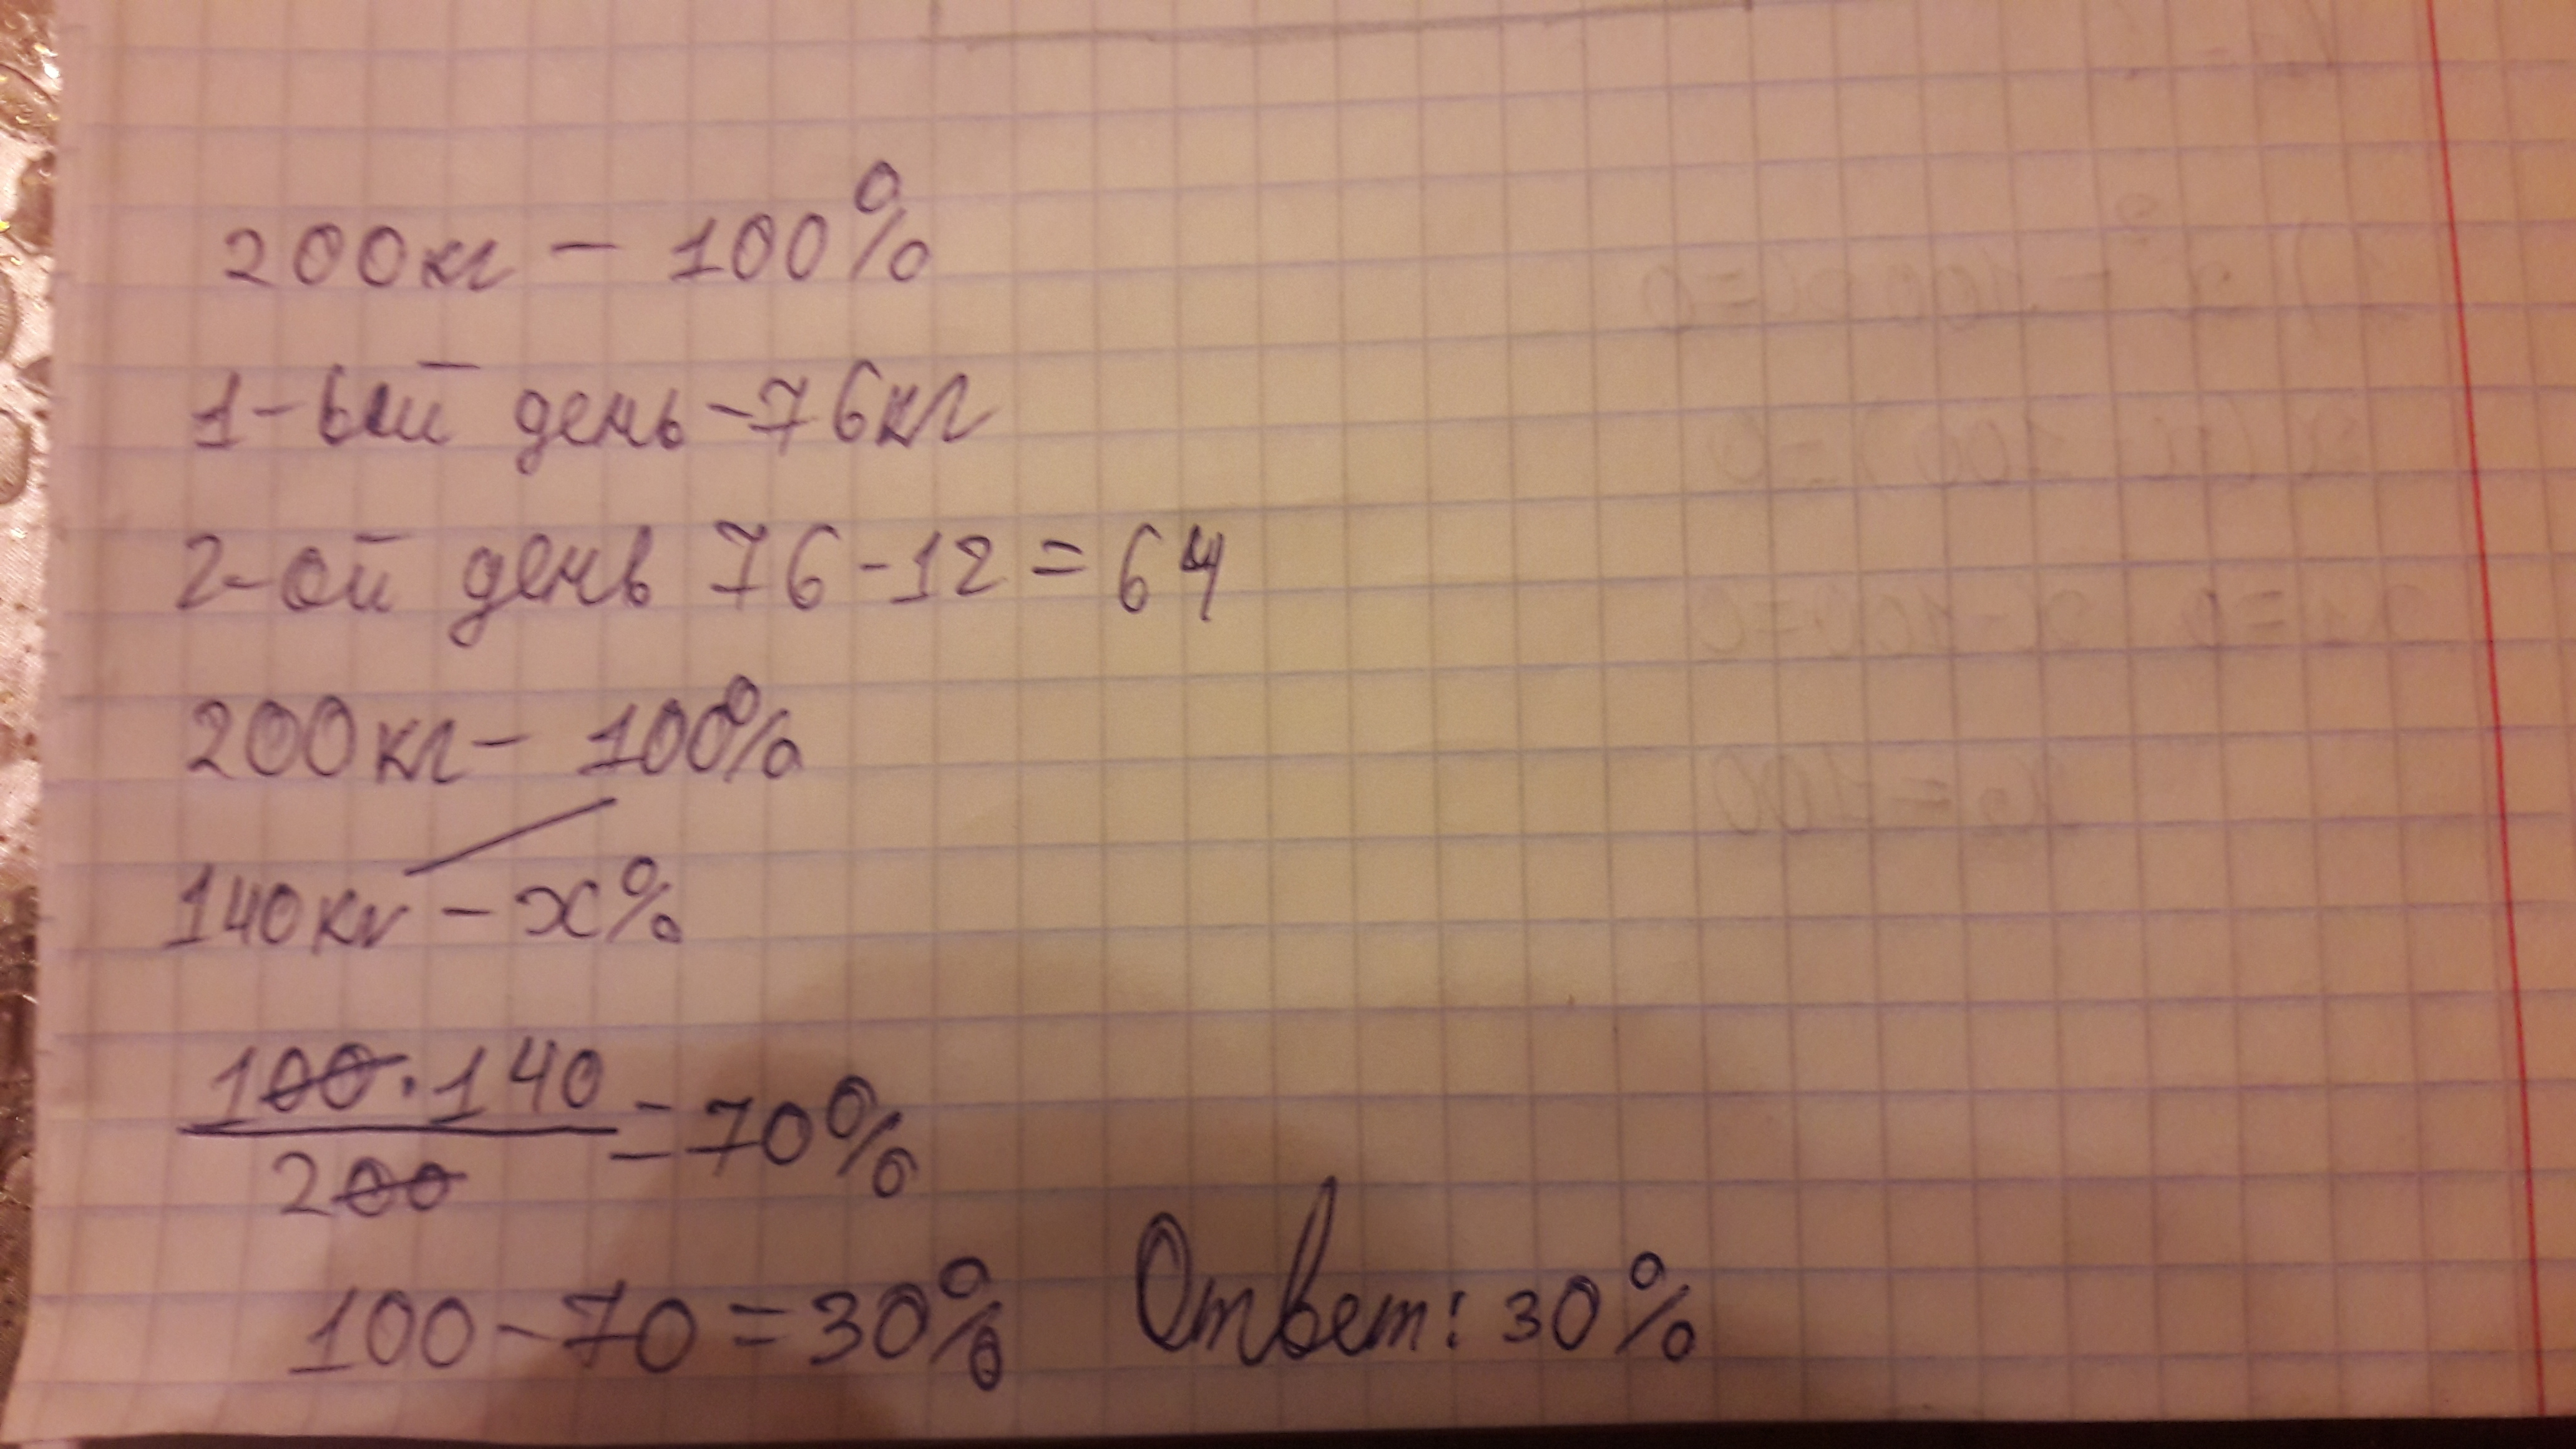 200кг – 100%
1-ый день – 76кг
2-ой день 76 - 12 = 64
200кг – 100%
140кг – x%
100 · 140
200
= 70%
100 - 70 = 30%
Ответ: 30%